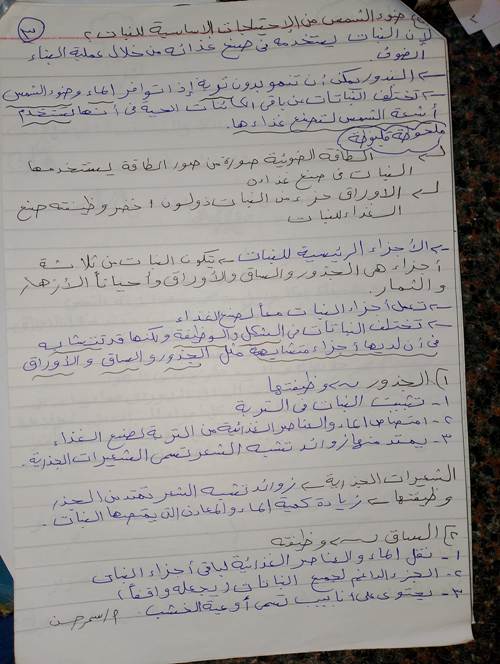 ٣
ضوء الشمس من الإحتياجات الاساسية للنبات ؟
لأن النبات يستخدمه فى صنع غذائه من خلال عملية البناء
الضوئى.
← البذور يمكن أن تنمو بدون تربة إذا توافر الماء وضوء الشمس
← تختلف النباتات عن باقى الكائنات الحية فى أنها تستخدم
أشعة الشمس لتصنع غذاءها.
ملحوظة مظبوطة
الطاقة الضوئية صورة من صور الطاقة يستخدمها
النبات فى صنع غذاءه
الأوراق جزء من النبات ذو لون أخضر وظيفته صنع
الغذاء للنبات
← الأجزاء الرئيسية للنبات ← يتكون النبات من ثلاثة
أجزاء هى الجذور والساق والأوراق وأحياناً الأزهار
والثمار.
← تعمل أجزاء النبات معاً لصنع الغذاء
← تختلف النباتات فى الشكل والوظيفة ولكنها قد تتشابه
فى أن لديها أجزاء متشابهة مثل الجذور والساق والأوراق
١] الجذور ← وظيفتها
١- تثبيت النبات فى التربة
٢- امتصاص الماء والعناصر الغذائية من التربة لصنع الغذاء
٣- يمتد منها زوائد تشبه الشعر تسمى الشعيرات الجذرية.
الشعيرات الجذرية ← زوائد تشبه الشعر تمتد من الجذر
وظيفتها ← زيادة كمية الماء والمعادن التى يمتصها النبات.
٢] الساق ← وظيفته
١- نقل الماء والعناصر الغذائية لباقى أجزاء النبات
٢- الجزء الداعم لجميع النباتات (يجعله واقفاً)
٣- يحتوى على أنابيب تسمى أوعية الخشب.
أ/سمر حسن